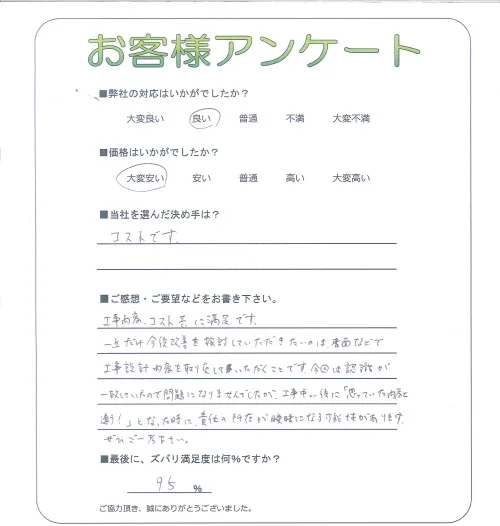 お客様アンケート
■弊社の対応はいかがでしたか？
大変良い 良い 普通 不満 大変不満
■価格はいかがでしたか？
大変安い 安い 普通 高い 大変高い
■当社を選んだ決め手は？
コストです.
■ご感想・ご要望などをお書き下さい。
工事内容、コスト共に満足です.
一点だけ今後改善を検討していただきたいのは、書面などで
工事設計内容を取り交していただくことです.今回は認識が
一致していたので問題になりませんでしたが、工事中や後に「思っていた内容と
違う！」となった時に、責任の所在が曖昧になる可能性があります.
ぜひご一考下さい。
■最後に、ズバリ満足度は何％ですか？
95 %
ご協力頂き、誠にありがとうございました。